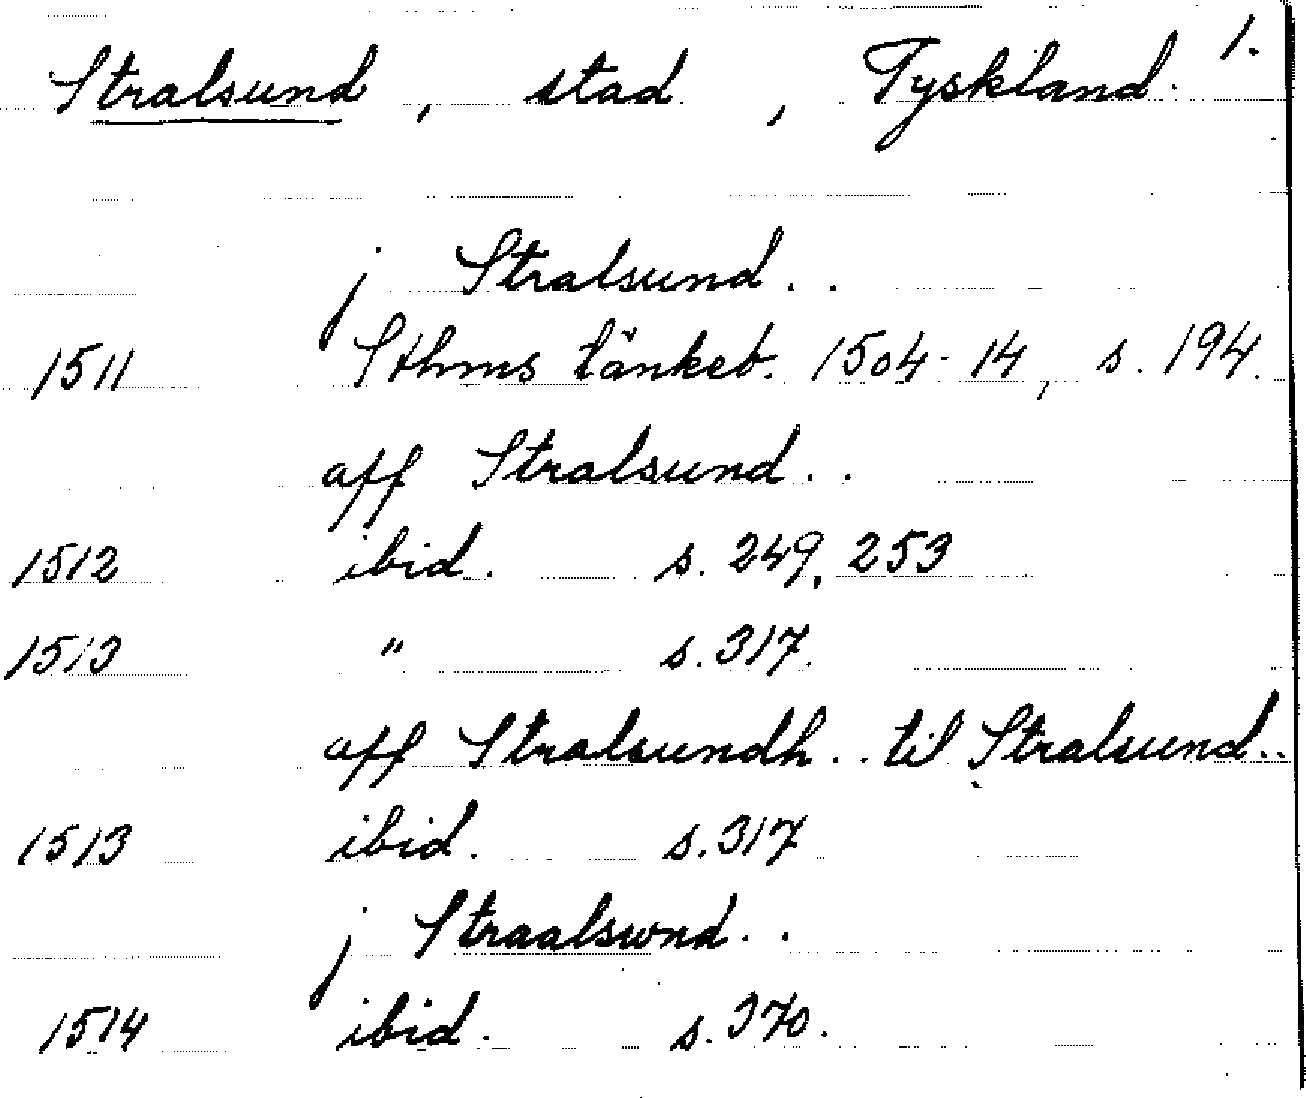 Stralsund, stad, Tyskland. 1.
j Stralsund..
1511 Sthms tänkeb. 1504-14, s. 194.
aff Stralsund..
1512 ibid. s. 249, 253
1513 " s. 317.
aff Stralsundh.. til Stralsund..
1513 ibid. s. 317
j Straalswnd..
1514 ibid. s. 370.